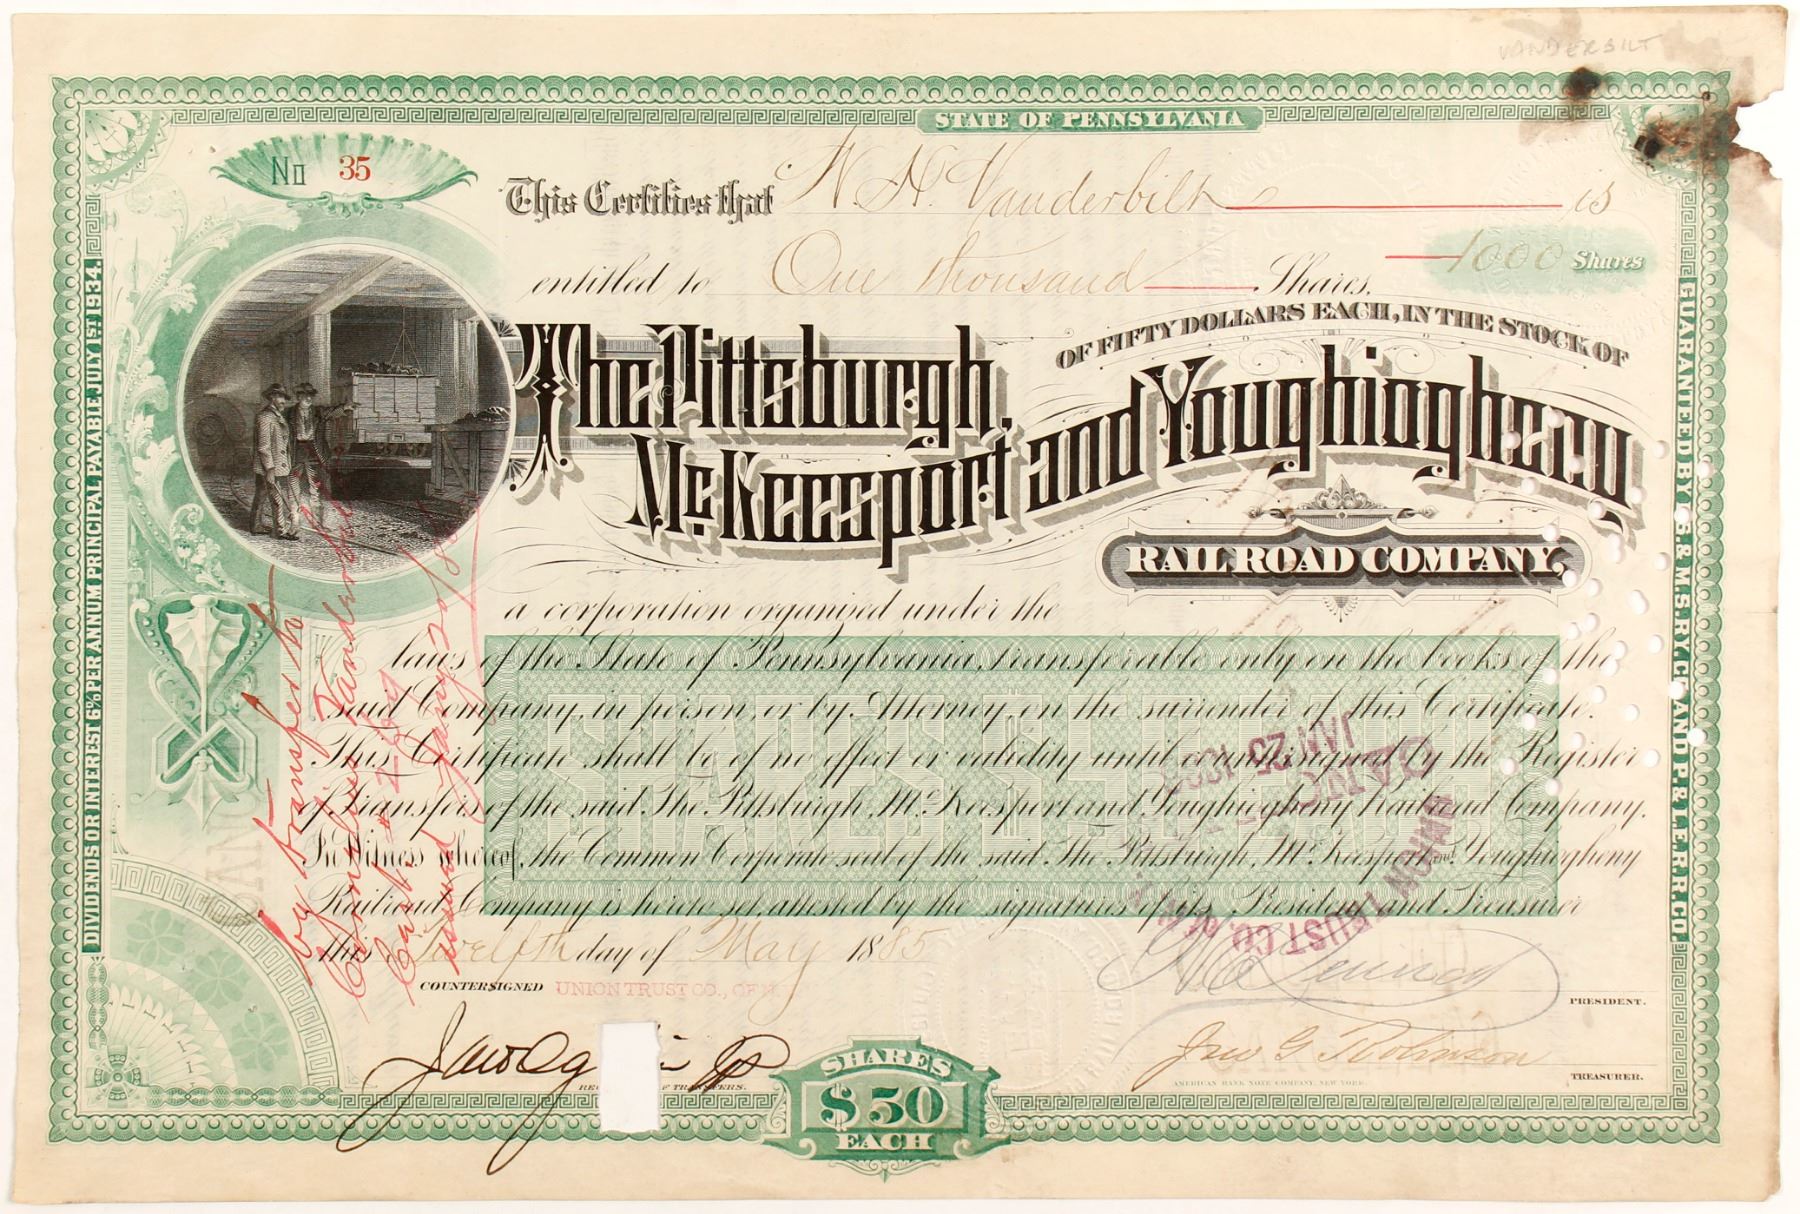 VANDERBILT
STATE OF PENNSYLVANIA
No 35
This Certifies that W. H. Vanderbilt is
entitled to One thousand Shares, 1000 Shares
OF FIFTY DOLLARS EACH, IN THE STOCK OF
The Pittsburgh, McKeesport and Youghiogheny
RAIL ROAD COMPANY,
a corporation organized under the
laws of the State of Pennsylvania, transferable only on the books of the
said Company, in person, or by Attorney on the surrender of this Certificate.
This Certificate shall be of no effect or validity until countersigned by the Register
of Transfers of the said The Pittsburgh, McKeesport and Youghiogheny Railroad Company.
In Witness whereof, the Common Corporate seal of the said The Pittsburgh, McKeesport and Youghiogheny
Railroad Company is hereto set attested by the signatures of its President and Treasurer
this Twelfth day of May 1885
COUNTERSIGNED UNION TRUST CO., OF N.
PRESIDENT.
Jno G Robinson
REG OF TRANSFERS.
AMERICAN BANK NOTE COMPANY, NEW YORK.
TREASURER.
SHARES
$50
EACH
DIVIDENDS OR INTEREST 6% PER ANNUM PRINCIPAL PAYABLE JULY 1ST 1934.
GUARANTEED BY L.S. & M.S. RY CO. AND P. & L.E. R.R. CO.
SHARES $50 EACH
by transfer to
Cornelius Vanderbilt
Cert #
issued Jany
CANC
JAN 25
UNION TRUST CO. OF N.